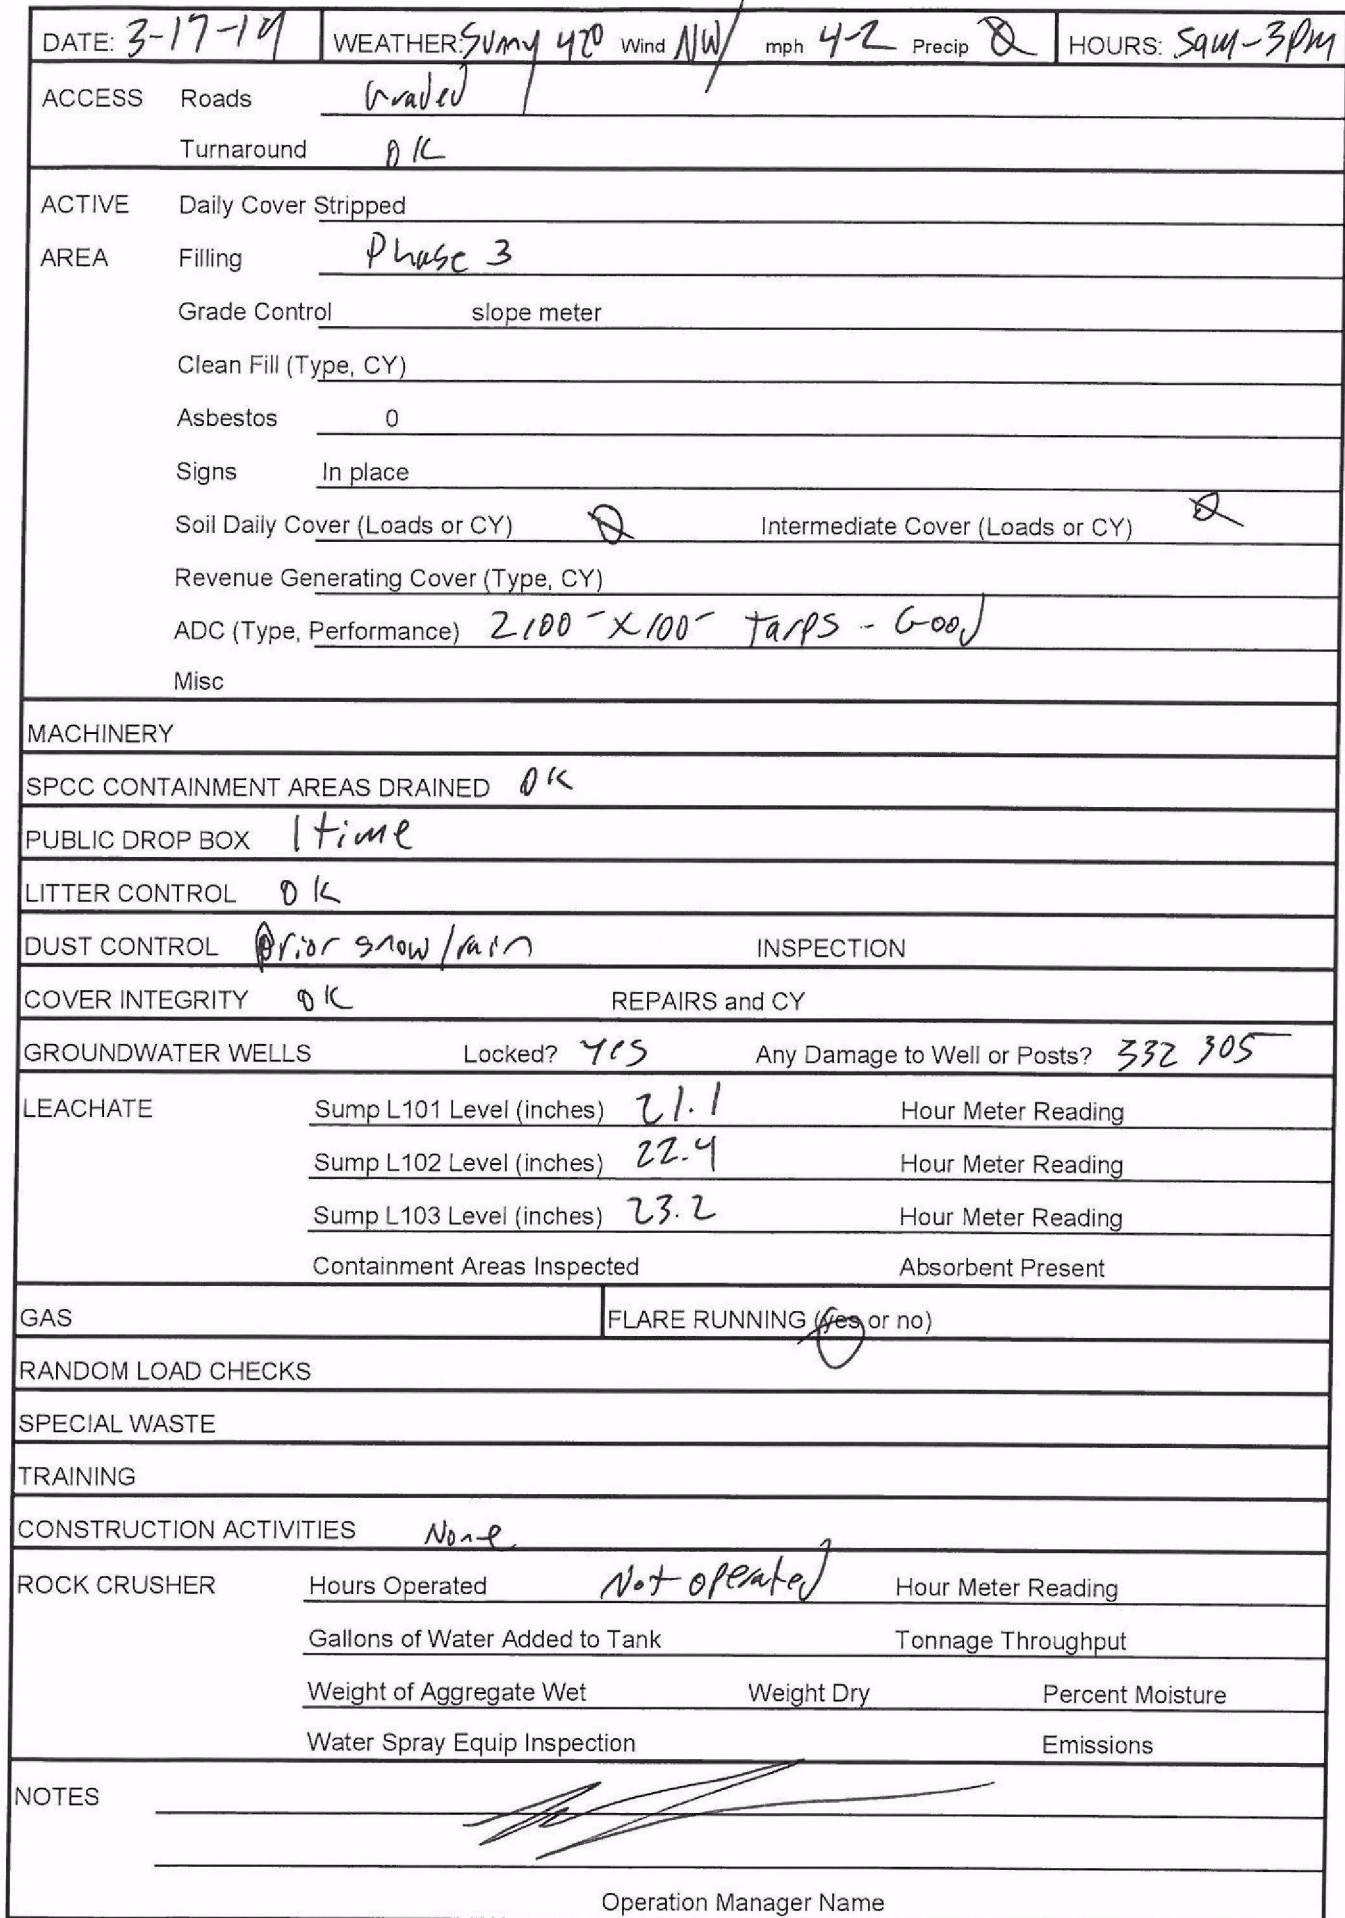 DATE: 3-17-19 WEATHER: Sunny 42° Wind NW mph 4-2 Precip Ø HOURS: 5am-3pm
ACCESS Roads Graded
Turnaround OK
ACTIVE Daily Cover Stripped
AREA Filling Phase 3
Grade Control slope meter
Clean Fill (Type, CY)
Asbestos 0
Signs In place
Soil Daily Cover (Loads or CY) Ø Intermediate Cover (Loads or CY) Ø
Revenue Generating Cover (Type, CY)
ADC (Type, Performance) 2 100' X 100' tarps - Good
Misc
MACHINERY
SPCC CONTAINMENT AREAS DRAINED OK
PUBLIC DROP BOX 1 time
LITTER CONTROL OK
DUST CONTROL Prior snow/rain INSPECTION
COVER INTEGRITY OK REPAIRS and CY
GROUNDWATER WELLS Locked? Yes Any Damage to Well or Posts? 332 305
LEACHATE Sump L101 Level (inches) 21.1 Hour Meter Reading
Sump L102 Level (inches) 22.4 Hour Meter Reading
Sump L103 Level (inches) 23.2 Hour Meter Reading
Containment Areas Inspected Absorbent Present
GAS FLARE RUNNING (yes or no)
RANDOM LOAD CHECKS
SPECIAL WASTE
TRAINING
CONSTRUCTION ACTIVITIES None
ROCK CRUSHER Hours Operated Not operated Hour Meter Reading
Gallons of Water Added to Tank Tonnage Throughput
Weight of Aggregate Wet Weight Dry Percent Moisture
Water Spray Equip Inspection Emissions
NOTES
Operation Manager Name